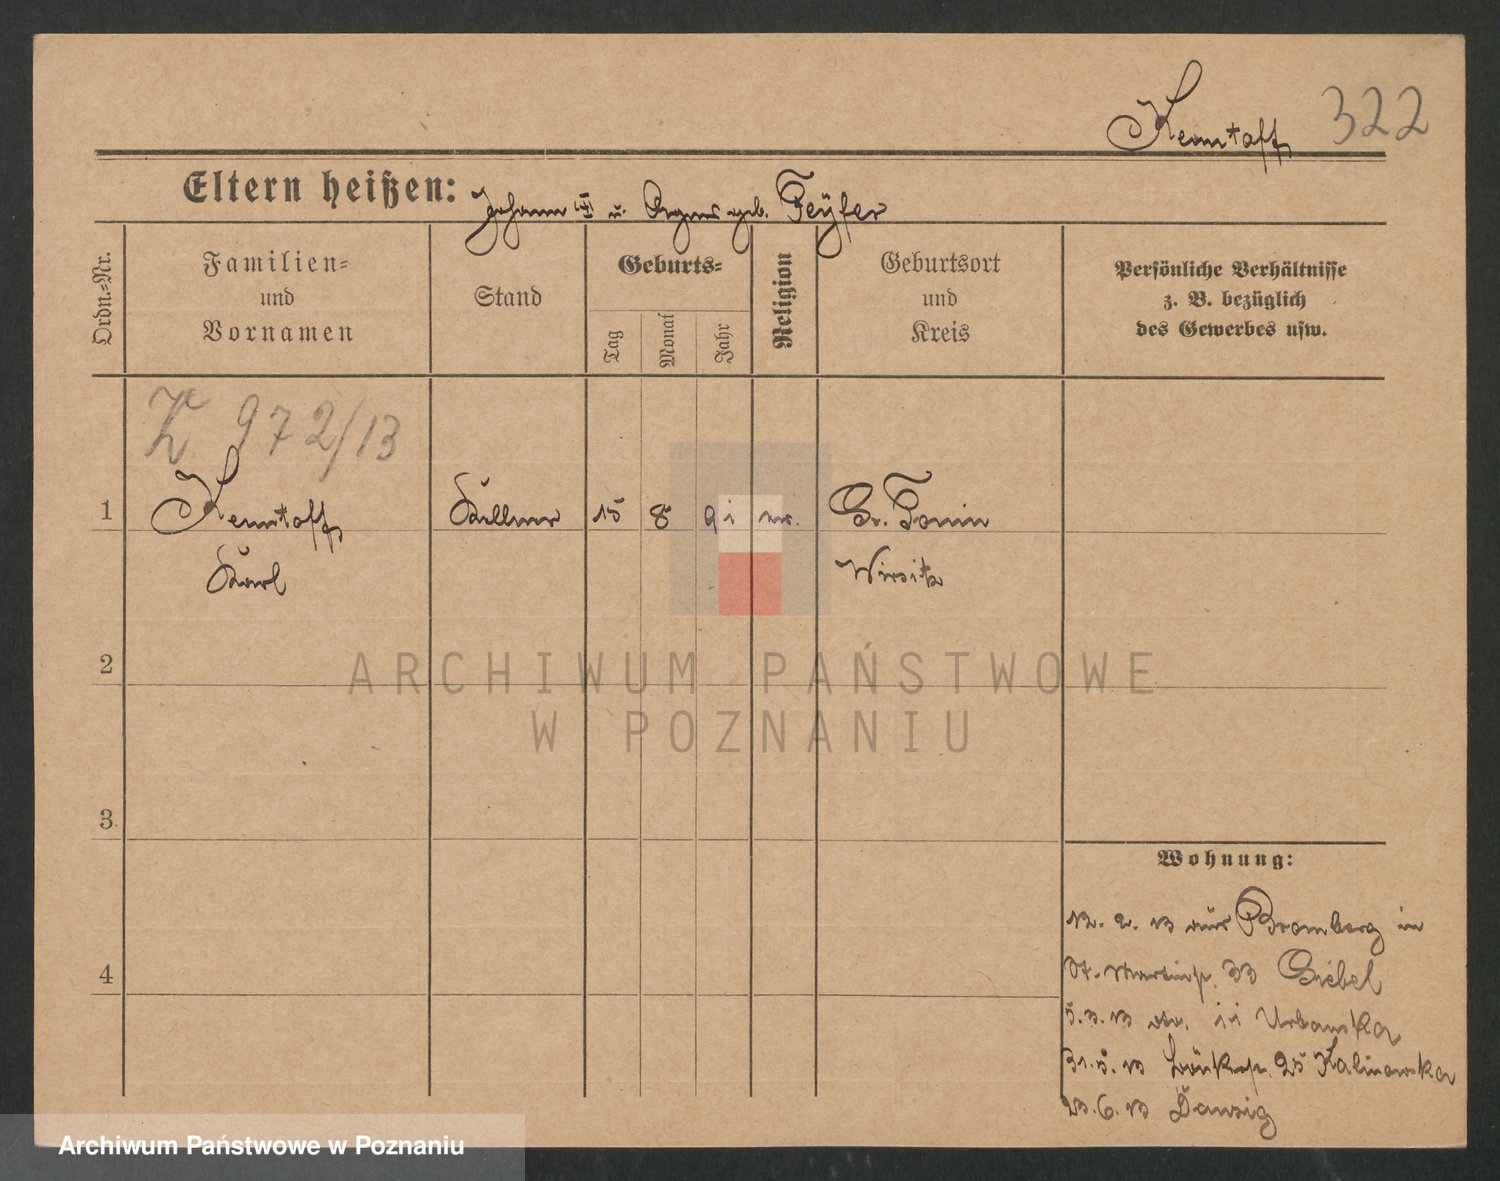 Kemntoff 322
Eltern heißen: Johann u. Agnes geb. Feyfer
Ordn.-Nr.
Familien-
und
Vornamen
Stand
Geburts-
Tag
Monat
Jahr
Religion
Geburtsort
und
Kreis
Persönliche Verhältnisse
z. B. bezüglich
des Gewerbes usw.
Z 972/13
1 Kemntoff Kellner 15 8 91 Gr. Tonin
Karl Wirsitz
2
ARCHIWUM PAŃSTWOWE
W POZNANIU
3
4
Wohnung:
12. 2. 13 aus Bromberg in
St. Martinstr. 33 Giebel
5.3.13 11 Urbanska
31.5.13 25 Kalinowska
23.6.13 Danzig
Archiwum Państwowe w Poznaniu